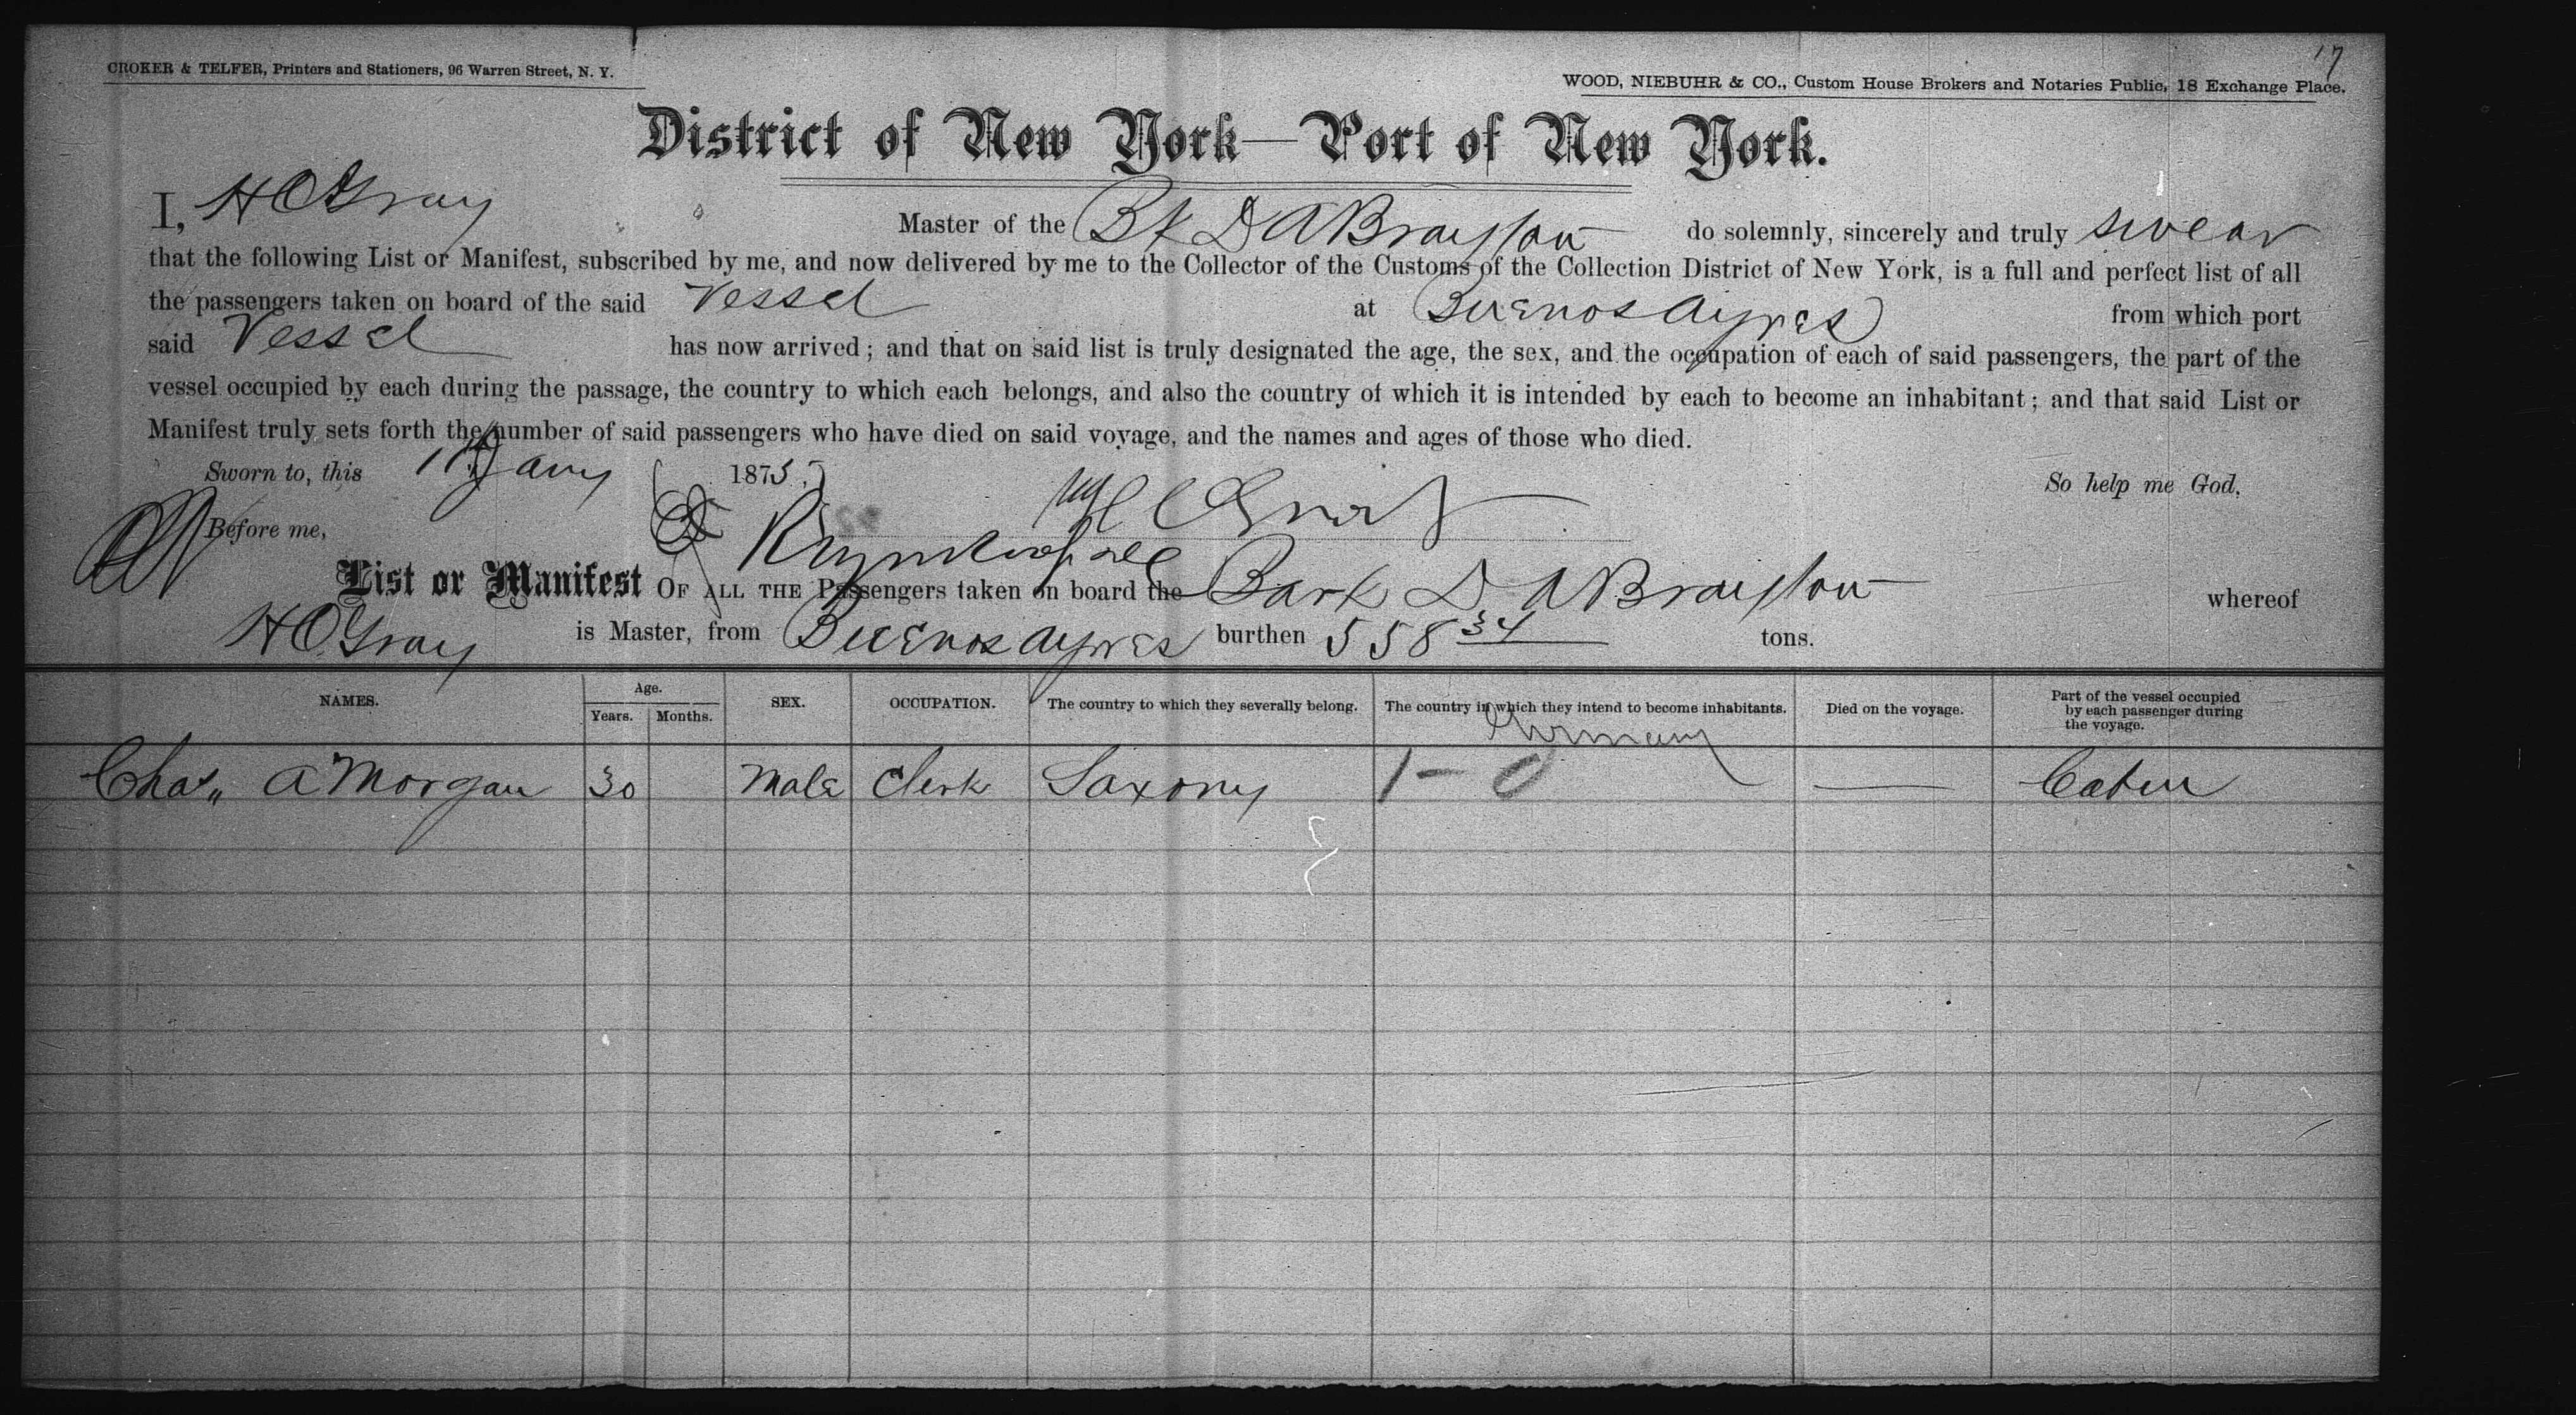 17
CROKER & TELFER, Printers and Stationers, 96 Warren Street, N. Y.
WOOD, NIEBUHR & CO., Custom House Brokers and Notaries Public, 18 Exchange Place.
District of New York—Port of New York.
I, H C Gray Master of the Bk D A Brayton do solemnly, sincerely and truly swear
that the following List or Manifest, subscribed by me, and now delivered by me to the Collector of the Customs of the Collection District of New York, is a full and perfect list of all
the passengers taken on board of the said Vessel at Buenos Ayres from which port
said Vessel has now arrived; and that on said list is truly designated the age, the sex, and the occupation of each of said passengers, the part of the
vessel occupied by each during the passage, the country to which each belongs, and also the country of which it is intended by each to become an inhabitant; and that said List or
Manifest truly sets forth the number of said passengers who have died on said voyage, and the names and ages of those who died.
Sworn to, this Jany 1875 So help me God,
Before me, H C Gray
List or Manifest OF ALL THE Passengers taken on board the Bark D A Brayton whereof
H C Gray is Master, from Buenos Ayres burthen 558 34 tons.
NAMES. Age. Years. Months. SEX. OCCUPATION. The country to which they severally belong. The country in which they intend to become inhabitants. Died on the voyage. Part of the vessel occupied by each passenger during the voyage.
Germany
Chas,, A Morgan 30 Male Clerk Saxony 1 - 0 — Cabin